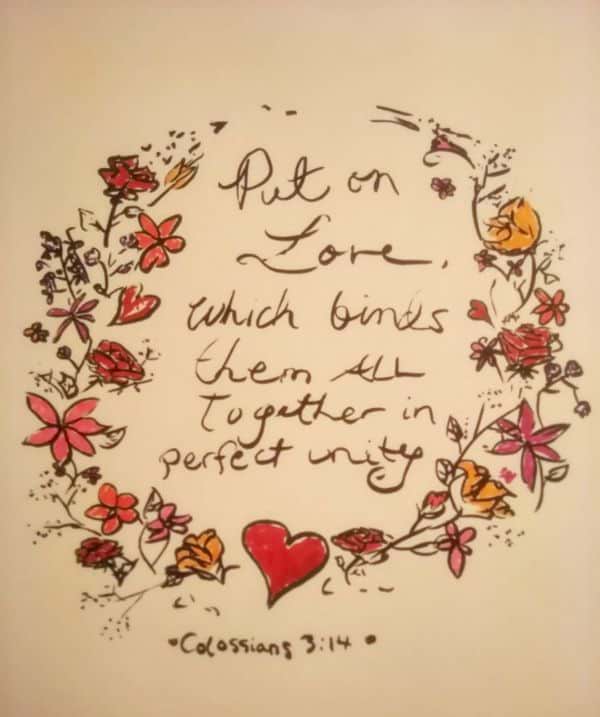 Put on
Love,
which binds
them ALL
Together in
perfect unity
•Colossians 3:14 •